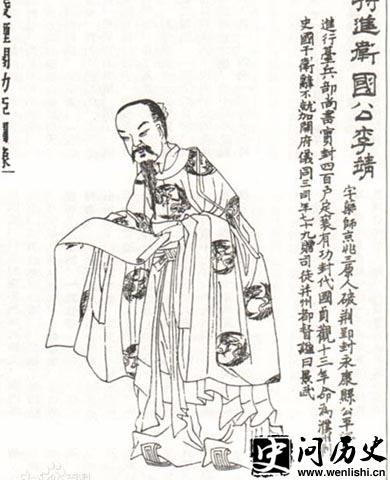 特進衛國公李靖
字藥師京兆三原人破荆郢封永康縣公平
進行臺兵部尚書實封四百戶定襄有功封代國貞觀十三年命為濮
史國于衛辭不就加開府儀同三司年七十九贈司徒并州都督謚曰景武
凌煙閣功臣圖像
史问历史
www.wenlishi.cn